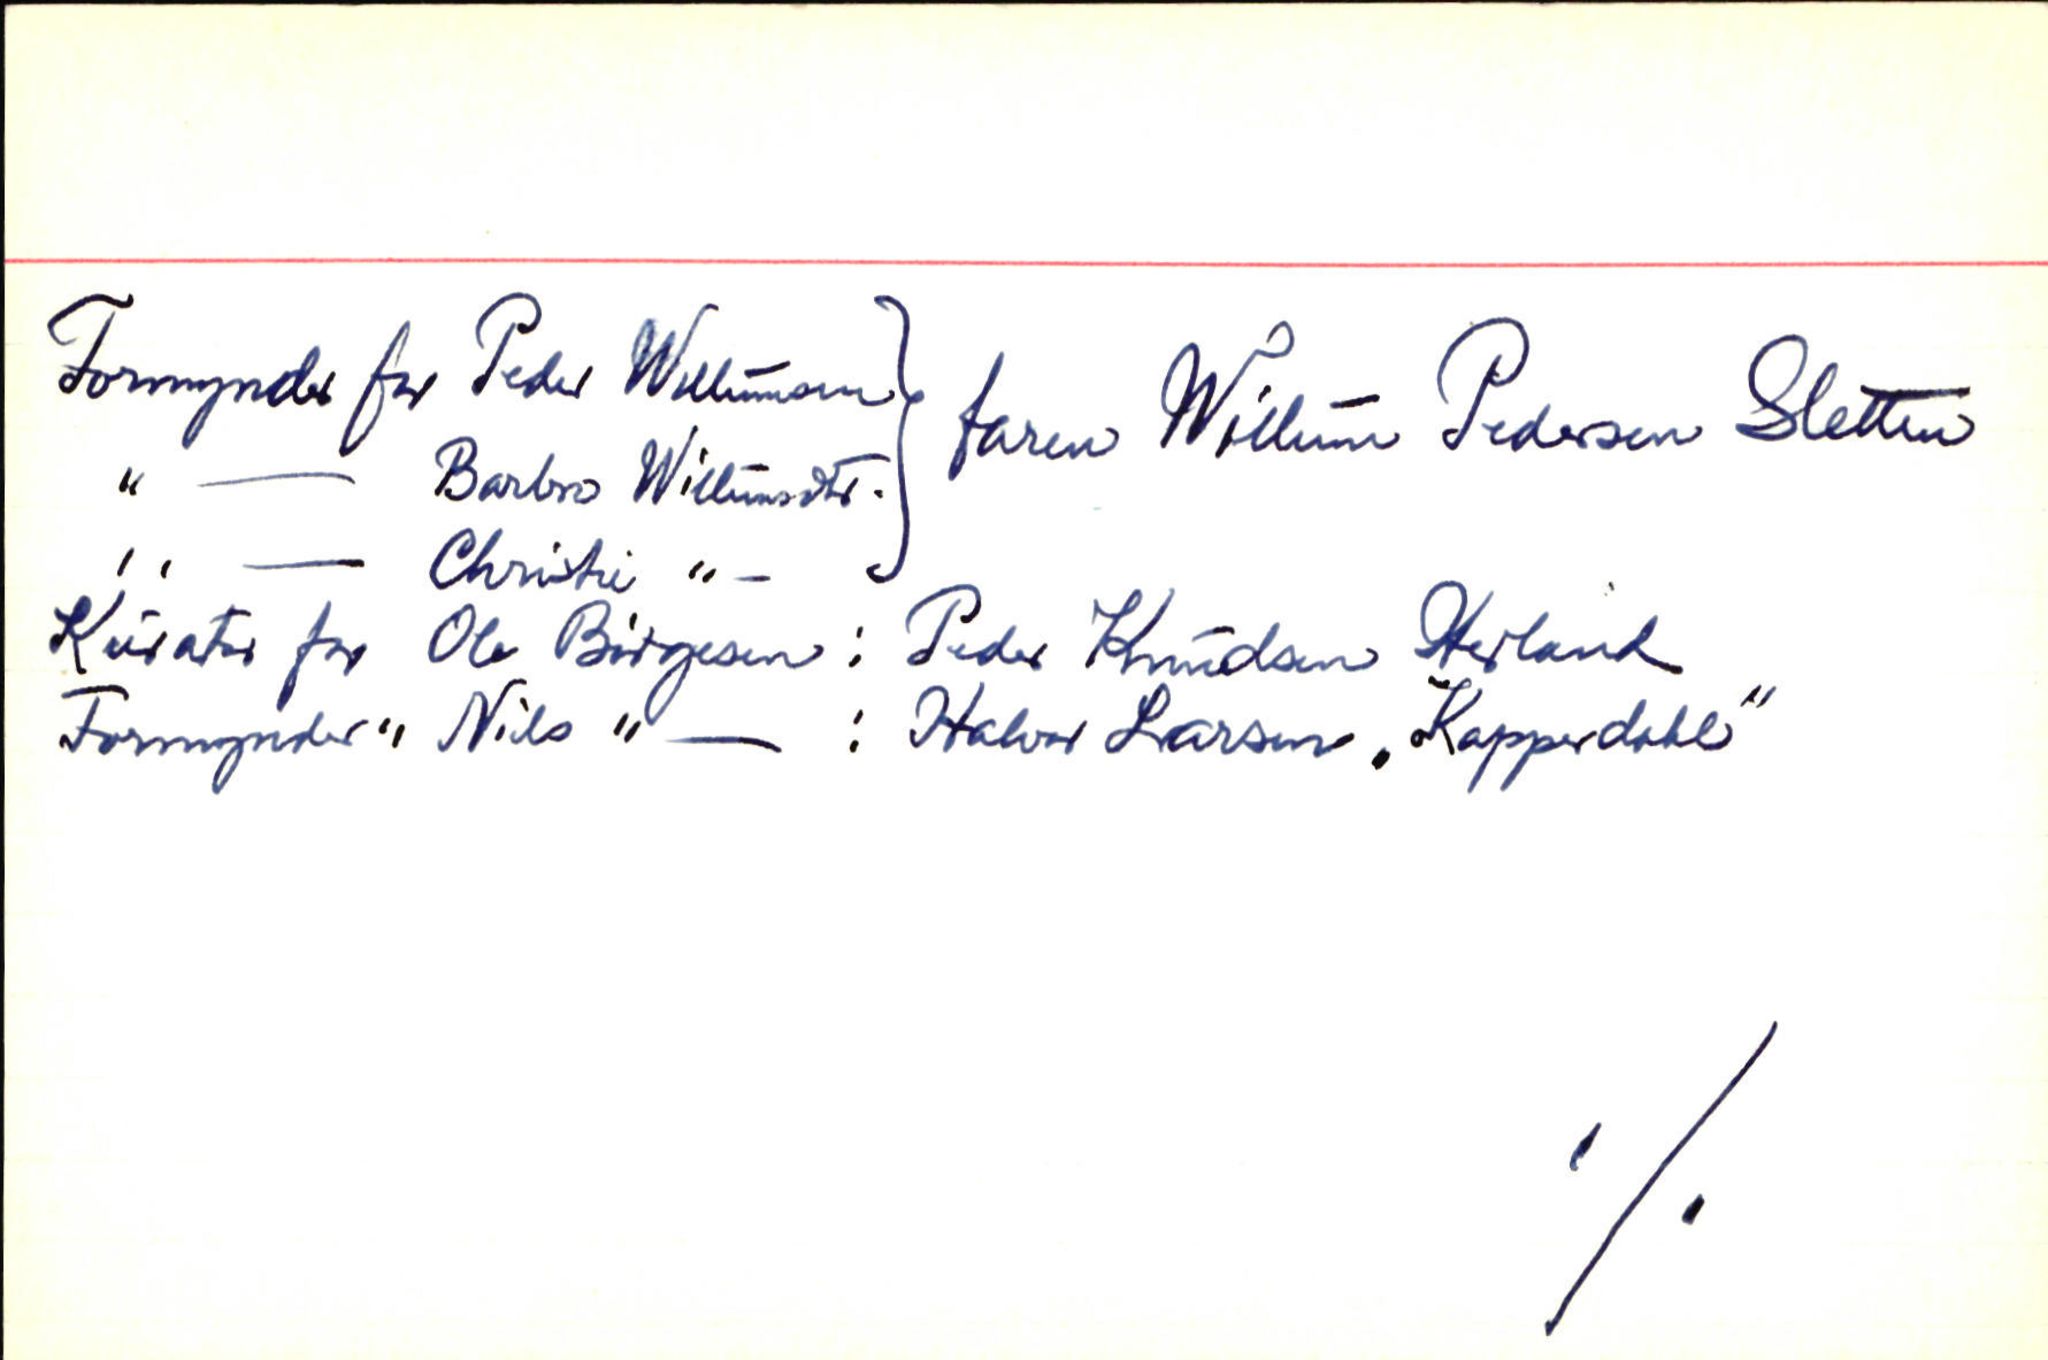 Formynder for Peder Willumsen } faren Willum Pedersen Sletten
" — Barbro Willumsdtr.
" — Christie " —
Kurator for Ole Børgesen : Peder Knudsen Heiland
Formynder " Nils " — : Halvor Larsen „Kapperdahl"
./.